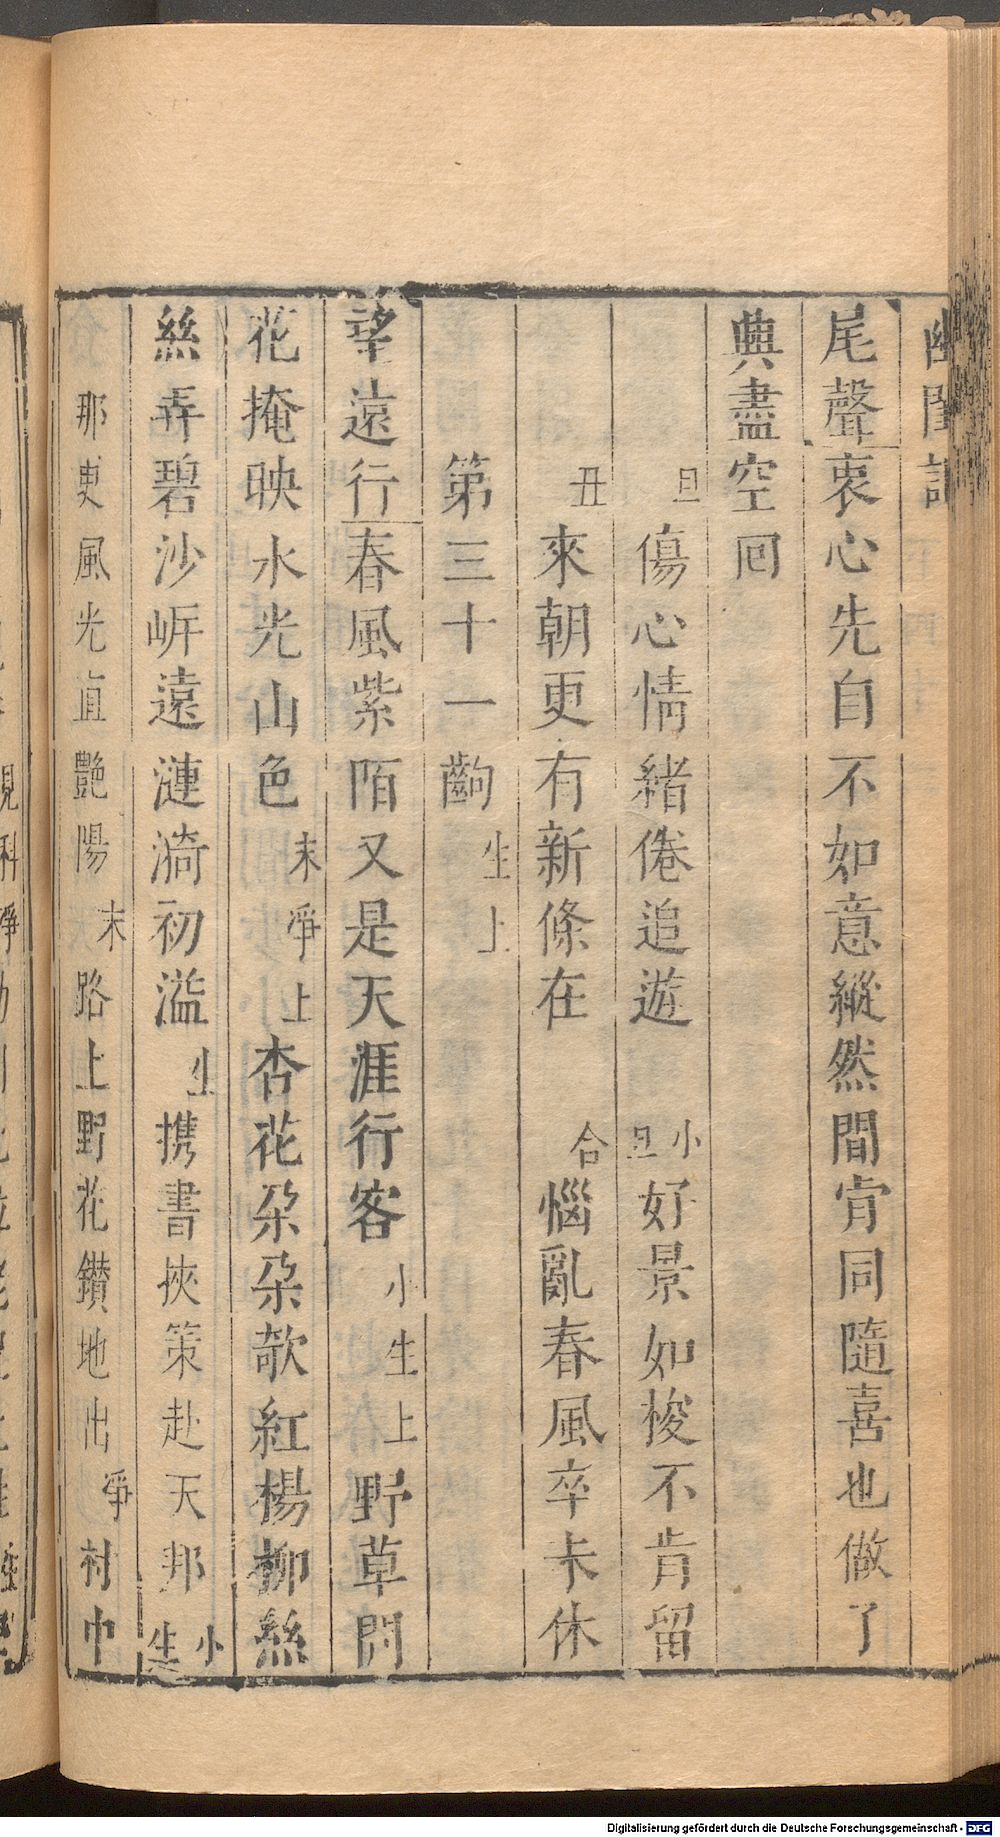 幽閨記
尾聲衷心先自不如意縱然間肯同隨喜也做了
興盡空囘
旦傷心情緒倦追遊 小旦好景如梭不肯留
丑來朝更有新條在 合惱亂春風卒未休
第三十一齣 生上
望遠行春風紫陌又是天涯行客小生上野草閒
花掩映水光山色末淨上杏花朵朵欹紅楊柳絲
絲弄碧沙㟁遠漣漪初溢生携書挾策赴天邦小生
那更風光直艷陽末路上野花鑽地出淨村中
Digitalisierung gefördert durch die Deutsche Forschungsgemeinschaft - DFG